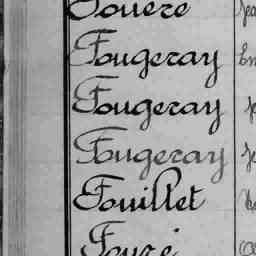 Fouere
Fougeray
Fougeray
Fougeray
Fouillet
Fouré